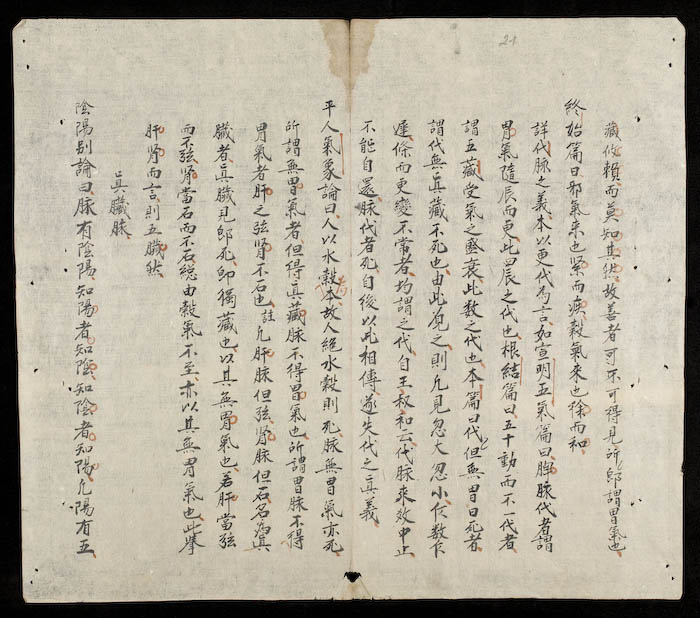 21
藏攸賴而莫知其然故善者可不可得見所即謂胃氣也
終始篇曰邪氣來也緊而疾穀氣來也徐而和
詳代脉之義本以更代為言如宣明五氣篇曰脾脉代者謂
胃氣隨辰而更此四辰之代也根結篇曰五十動而不一代者
謂五藏受氣之盛衰此数之代也本篇曰代但無胃曰死者
謂代無眞藏不死也由此觀之則凡見忽大忽小乍数乍
遲倏而更變不常者均謂之代自王叔和云代脉來数中止
不能自還脉代者死自後以此相傳遂失代之眞義
平人氣象論曰人以水穀本故人絕水穀則死脉無胃氣亦死
者
所謂無胃氣者但得眞藏脉不得胃氣也所謂胃脉不得
胃氣者肝之弦肾不石也註凡肝脉但弦肾脉但石名為眞
臟者眞臟見即死即獨藏也以其無胃氣也若肝當弦
而不弦肾當石而不石総由穀氣不至亦以其無胃氣也此举
肝肾而言則五臟狀
眞臟脉
陰陽别論曰脉有陰陽知陽者知陰知陰者知陽凡陽有五